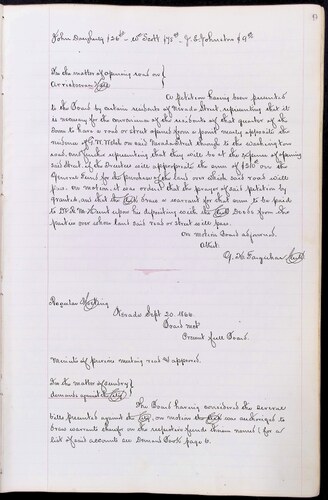 John Dougherty $26.00 - Wm Scott $72.00 - J. S. Johnston $9.00
In the matter of opening road or
A petition having been presented
to the Board by certain residents of Nevada Street, representing that it
is necessary for the convenience of the residents of that quarter of the
Town to have a road or street opened from a point nearly opposite the
residence of G. W. Welch on said Nevada Street through to the Washington
road, and further representing that they will be at the expense of opening
said Street, if the Trustees will appropriate the sum of $50 from the
General Fund for the purchase of the land over which said road will
pass. On motion, it was ordered that the prayer of said petition be
granted, and that the Clerk draw a warrant for that sum to be paid
to upon his depositing with the Clerk Deeds from the
parties over whose land said road or street will pass.
On motion Board adjourned.
Attest
Clerk
Regular Meeting
Nevada Sept 20. 1866.
Board met
Present full Board.
Minutes of previous meeting read & approved.
In the matter of sundry
demands against the City
The Board having considered the several
bills presented against the City, on motion the Clerk was authorized to
draw warrants on the respective funds therein named (for a
list of said accounts see Demand Book page 6.